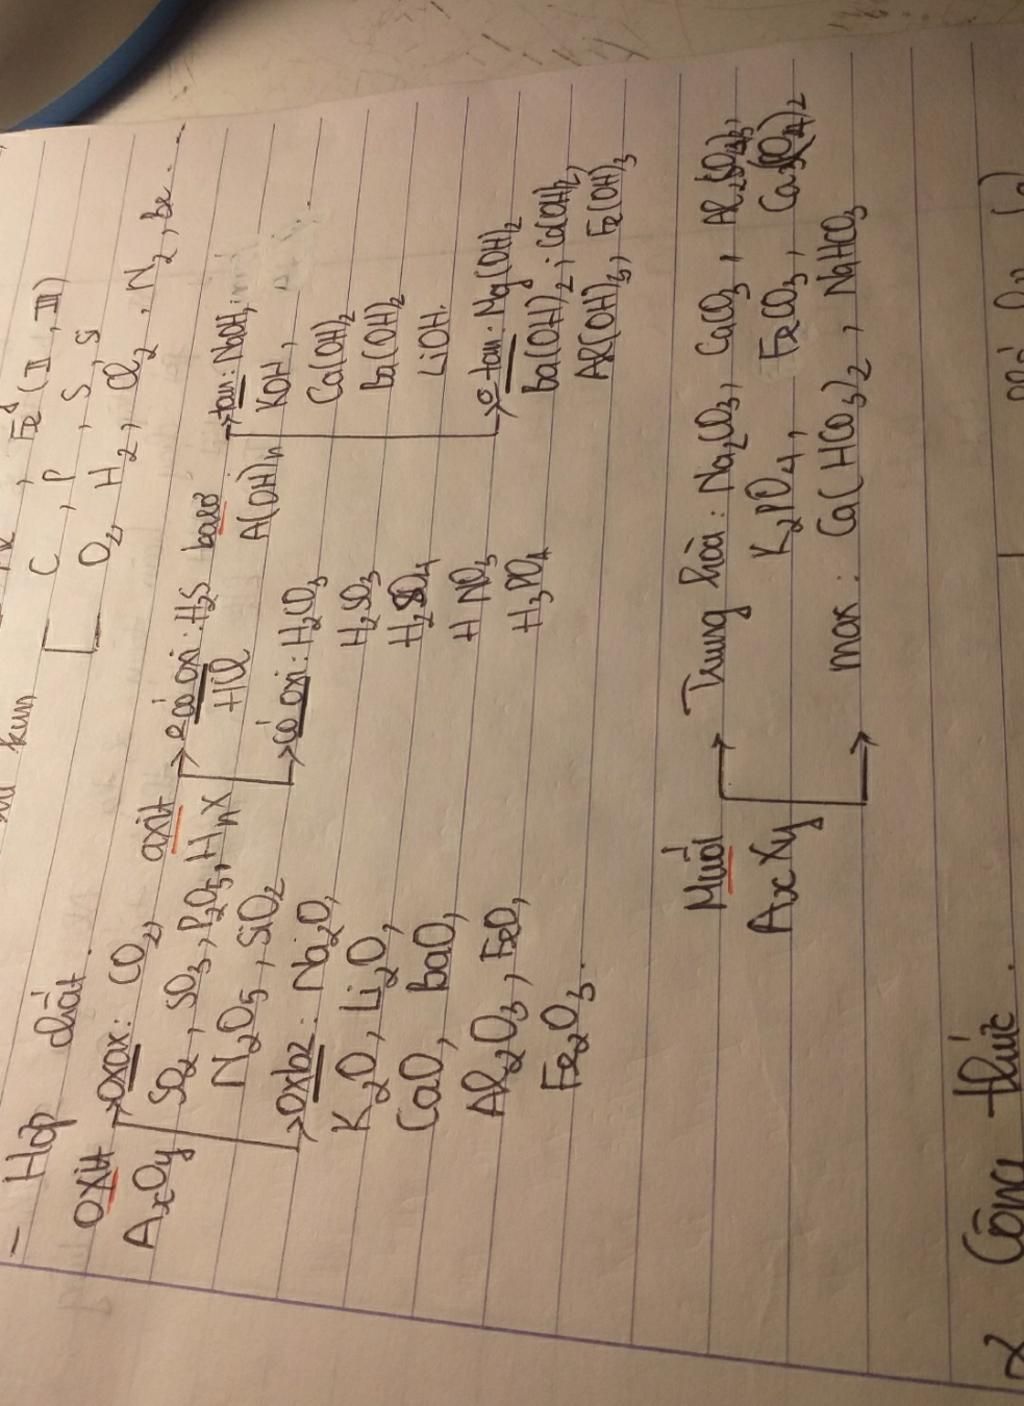 kim
C, Fe (II, III)
C, P, S, Si
O2, H2, Cl2, N2, br...
- Hợp chất.
oxit
AxOy
oxax: CO2,
SO2, SO3, P2O5,
N2O5, SiO2
oxbz: Na2O,
K2O, Li2O,
CaO, baO,
Al2O3, FeO,
Fe2O3.
axit
HnX
có oxi: H2S
HCl
có oxi: H2CO3
H2SO3
H2SO4
HNO3
H3PO4
bazơ
A(OH)n
tan: NaOH,
KOH,
Ca(OH)2
Ba(OH)2
LiOH.
tan: Mg(OH)2
ba(OH)2;
Al(OH)3, Fe(OH)3
Muối
AxXy
Trung hòa: Na2CO3, CaCO3, Al2(SO4)3,
K2PO4, FeCO3,
max: Ca(HCO3)2, NaHCO3
Công thức.